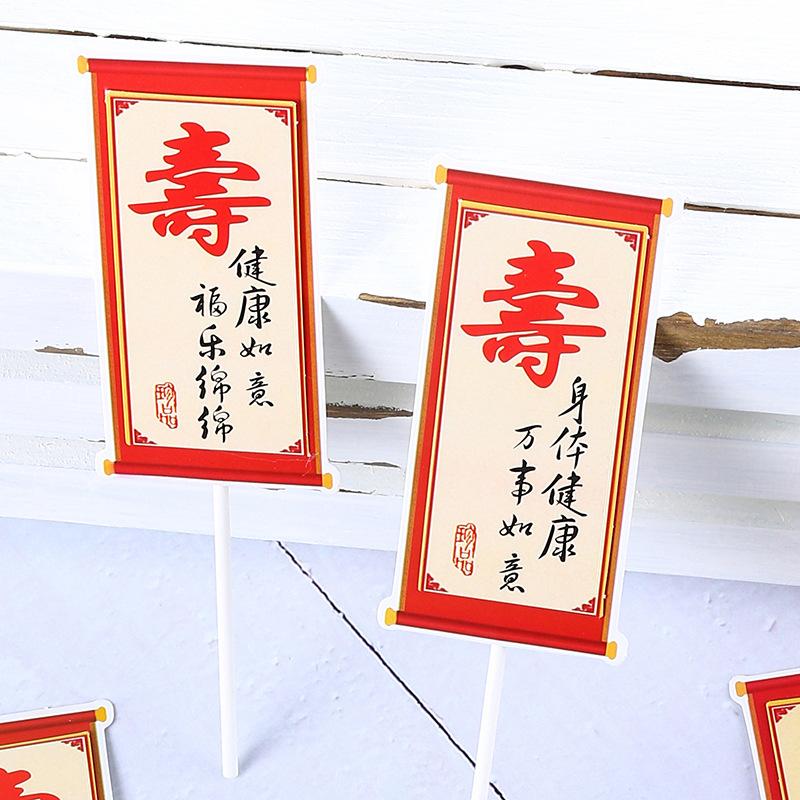 壽
健康如意
福乐绵绵
珍品
壽
身体健康
万事如意
珍品